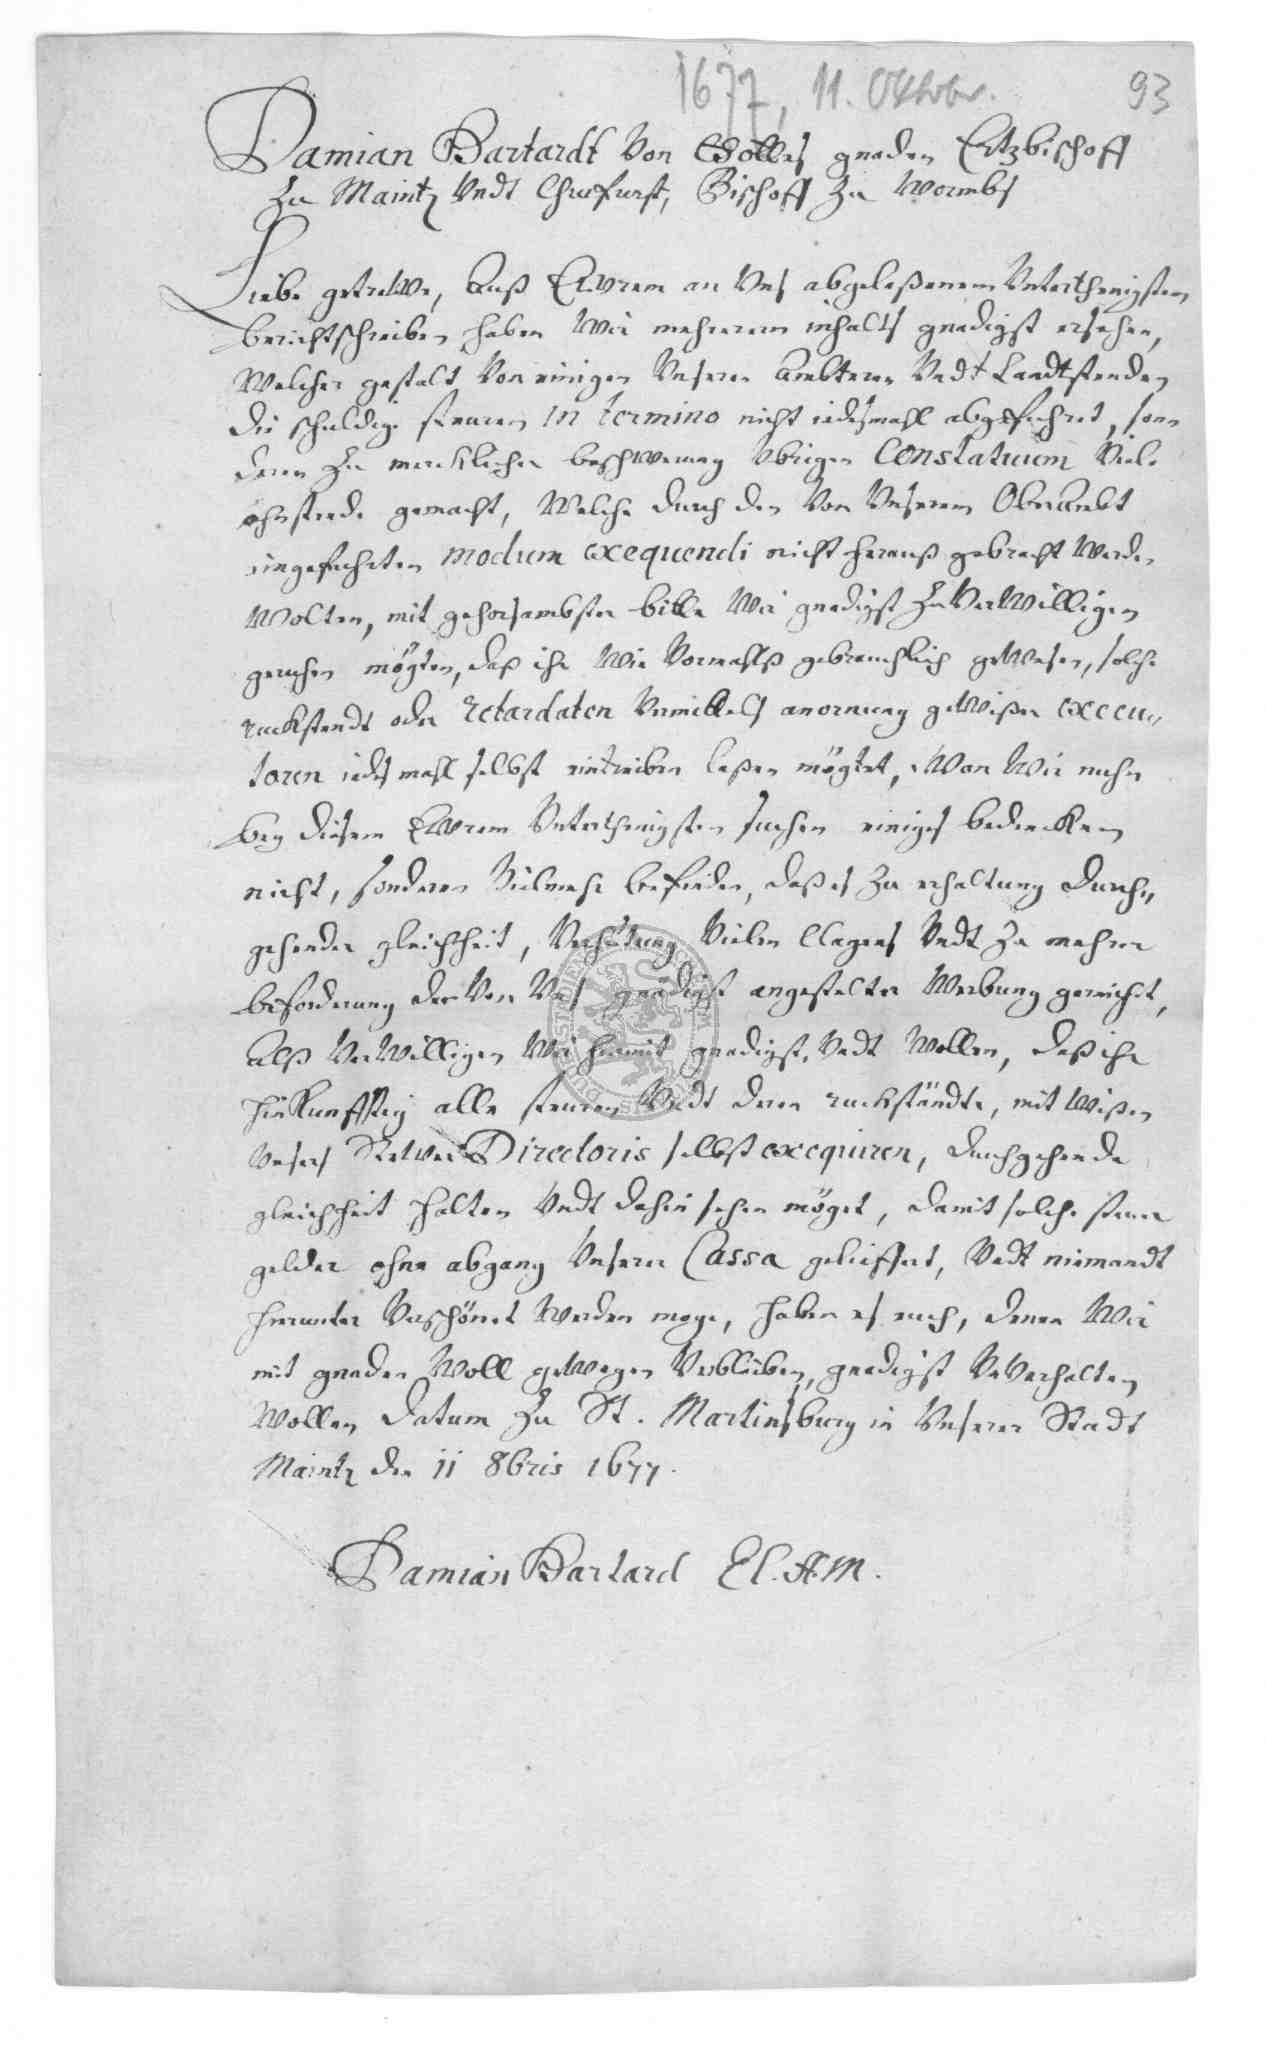 1677, 11. Oktober.
93
Damian Hartardt Von Gottes gnaden Ertzbischoff
Zu Maintz Vndt Churfurst, Bischoff Zu Wormbs
Liebe getrewe, Auß Ewrem an Vns abgelaßenem Vnterthenigsten
berichtschreiben haben Wir mehrerem inhalts gnedigst ersehen,
Welcher gestalt Von einigen Vnseren Ambteren Vndt Landtstenden
die schuldige steuren in termino nicht iedesmahl abgefuhret, son
deren Zu mercklicher beschwerung Vbrigen Constatuum Viele
ohnstende gemacht, Welche durch den Von Vnserem Oberambt
eingefuhrten modum exequendi nicht herauß gebracht Werden
Wolten, mit gehorsambster bitte Wir gnedigst Zu VerWilligen
geruhen mögten, daß ihr Wie Vormahlß gebreuchlich geWesen, solche
ruckstendt oder retardaten Vermittels anornung geWißer execu„
toren iedes mahl selbst eintreiben laßen mögtet, Wan Wir nuhn
bey diesem Ewrem Vnterthenigsten suchen einiges bedencken
nicht, sonderen Vielmehr befinden, daß es Zu erhaltung durch„
gehender gleichheit, Verhütung Vielen Clagens Vndt Zu mehrer
beforderung der Von Vns gnädigst angestelter Werbung gereichet,
Alß VerWilligen Wir hiemit gnedigst, Vndt Wollen, daß ihr
hinkunfftig alle steuren Vndt deren ruckständte, mit Wißen
Vnsers Directoris selbst exequiren, durchgehende
gleichheit halten Vndt dahin sehen möget, damit solche steur
gelder ohne abgang Vnserer Cassa gelieffert, Vndt niemandt
hierunter Verschönet Werden moge, haben es euch, denen Wir
mit gnaden Woll geWogen Verbleiben, gnedigst VnVerhalten
Wollen Datum Zu St. Martinsburg in Vnserer Stadt
Maintz den 11 8bris 1677.
Damian Hartard El. A. M.